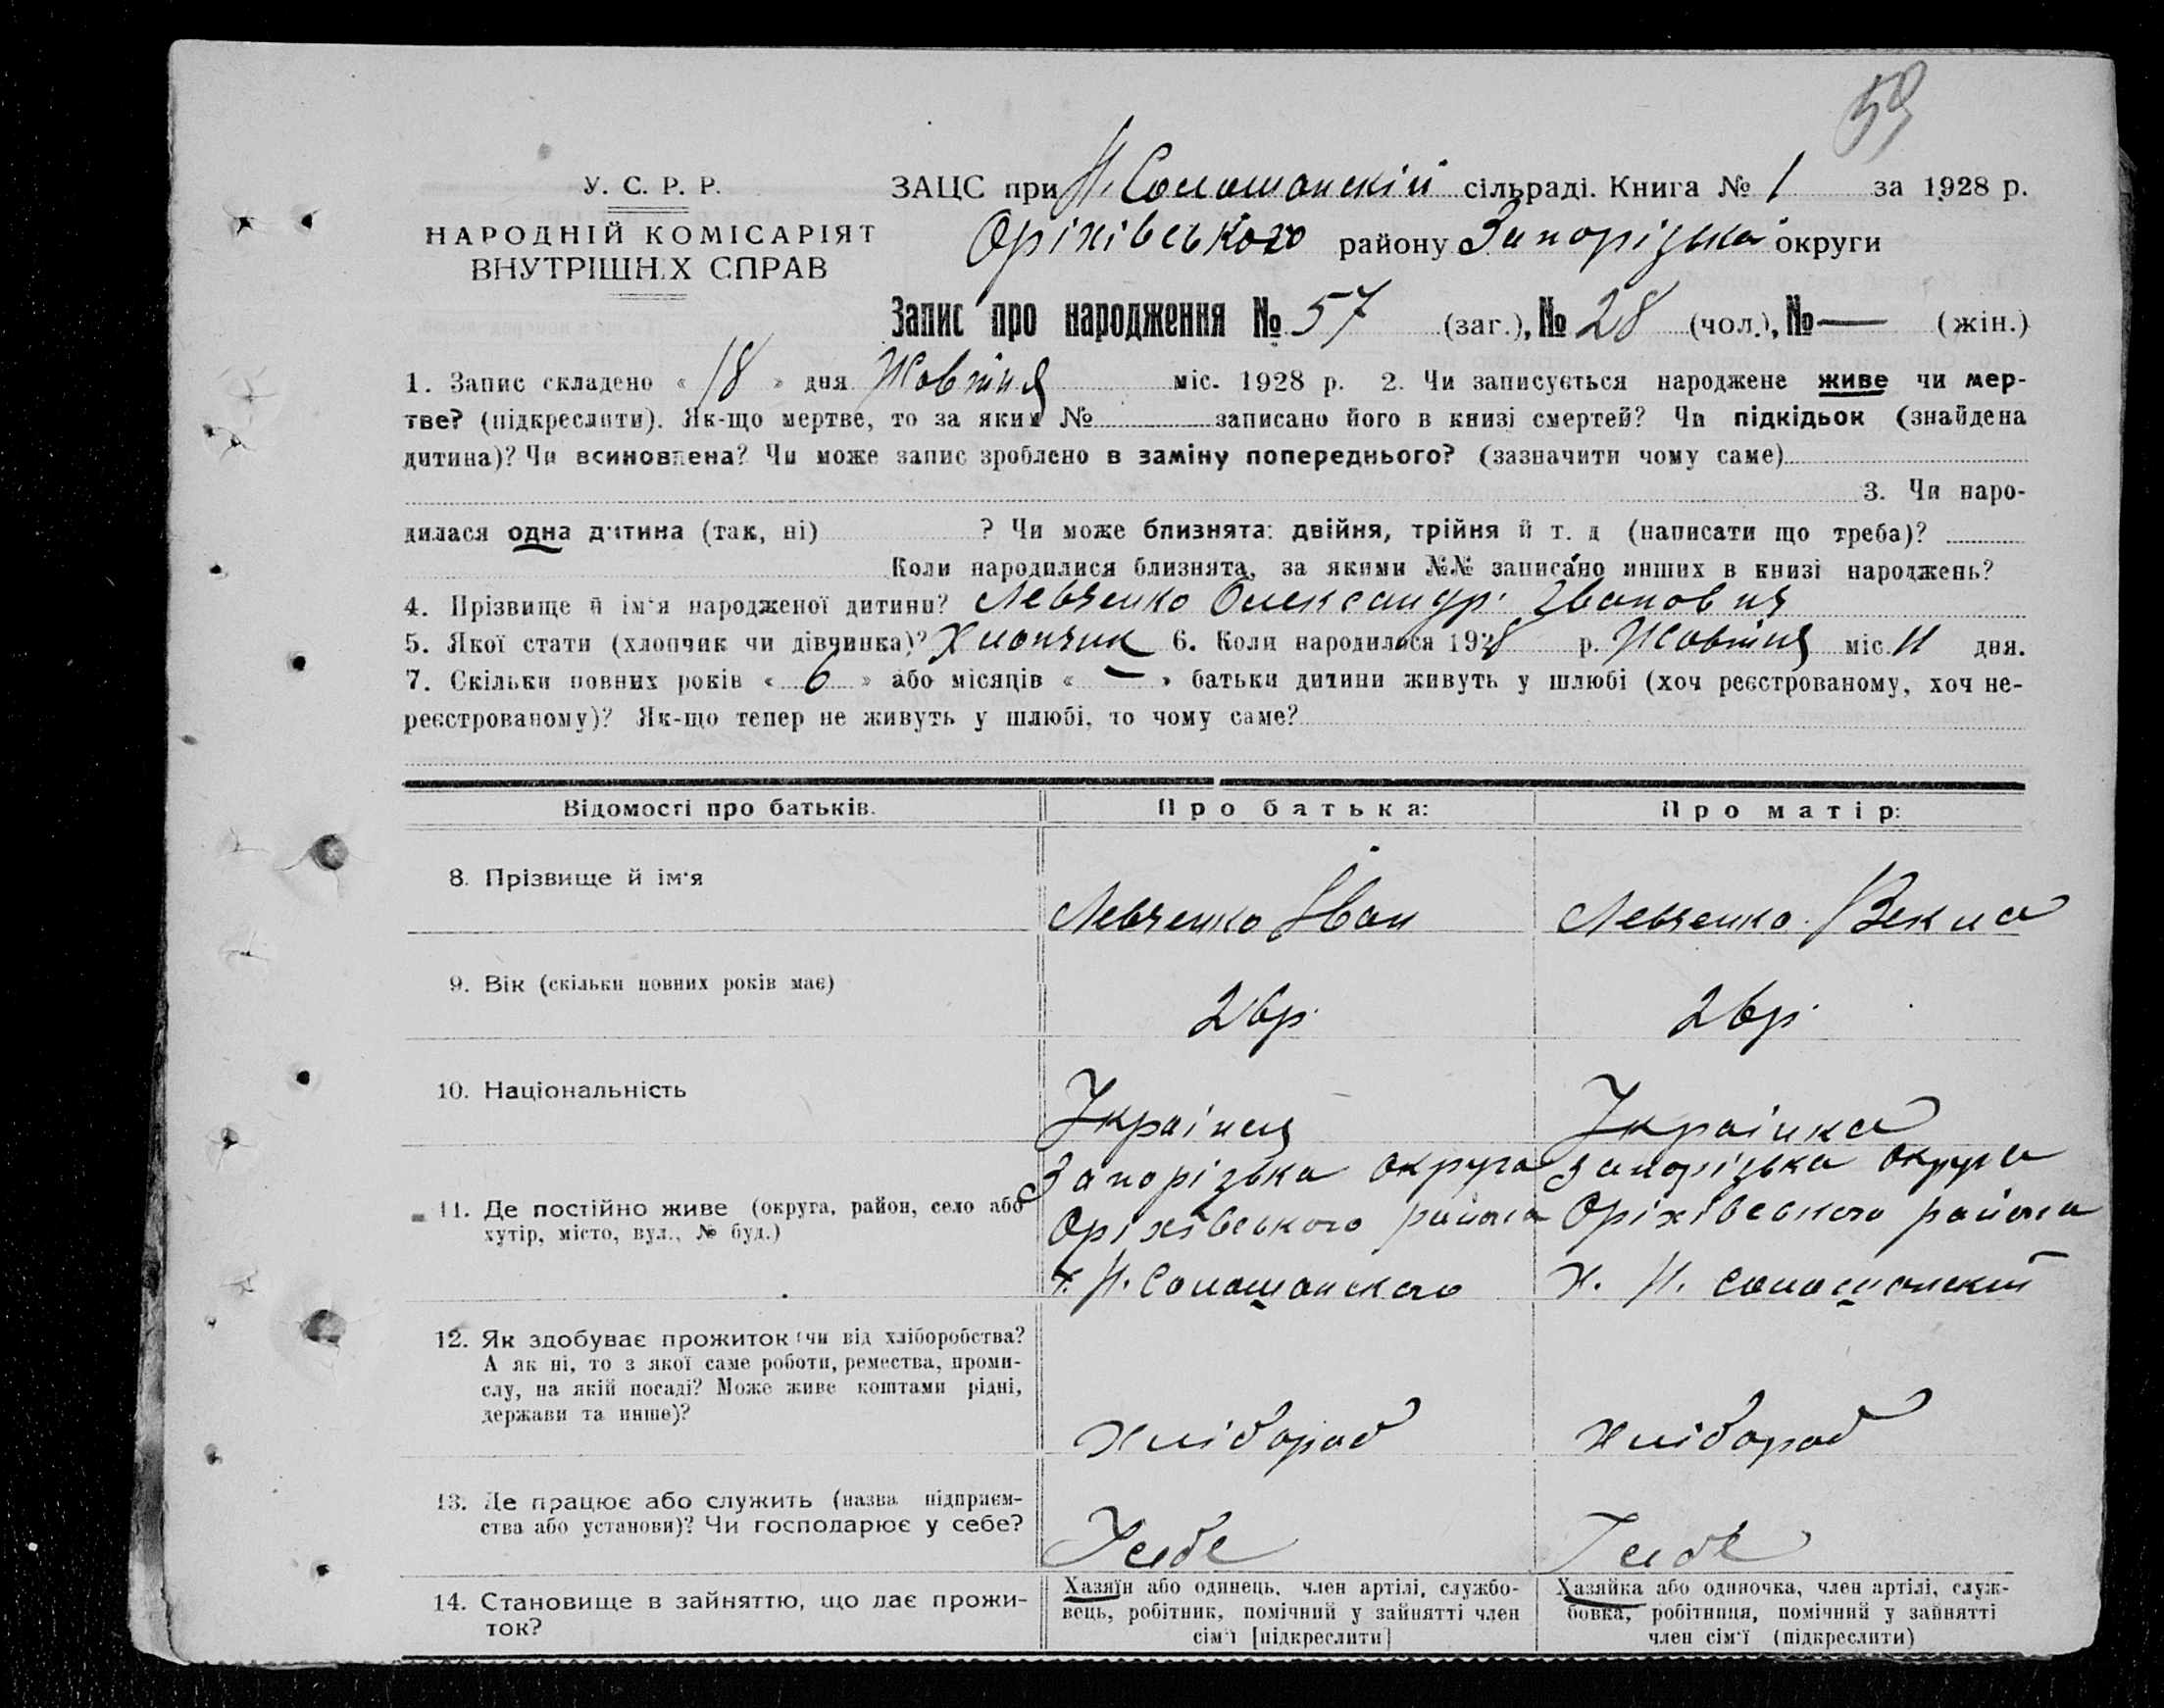 59
У. С. Р. Р.
НАРОДНІЙ КОМІСАРІЯТ
ВНУТРІШНІХ СПРАВ
ЗАЦС при Н. Солошанскій сільраді. Книга № 1 за 1928 р.
Оріхівського району Запорізької округи
Запис про народження № 57 (заг.), № 28 (чол.), № — (жін.)
1. Запис складено « 18 » дня Жовтня міс. 1928 р. 2. Чи записується народжене живе чи мер-
тве? (підкреслити). Як-що мертве, то за яким № записано його в книзі смертей? Чи підкідьок (знайдена
дитина)? Чи всиновлена? Чи може запис зроблено в заміну попереднього? (зазначити чому саме)
3. Чи наро-
дилася одна дитина (так, ні) ? Чи може близнята: двійня, трійня й т. д (написати що треба)?
Коли народилися близнята, за якими №№ записано инших в книзі народжень?
4. Прізвище й ім'я народженої дитини? Левченко Олександр Іванович
5. Якої стати (хлопчик чи дівчинка)? Хлопчик 6. Коли народилося 1928 р. Жовтня міс. 11 дня.
7. Скільки повних років « 6 » або місяців « — » батьки дитини живуть у шлюбі (хоч реєстрованому, хоч не-
реєстрованому)? Як-що тепер не живуть у шлюбі, то чому саме?
Відомості про батьків. Про батька: Про матір:
8. Прізвище й ім'я
Левченко Іван Левченко Векла
9. Вік (скільки повних років має)
26р. 26р.
10. Національність
Українец Українка
11. Де постійно живе (округа, район, село або
хутір, місто, вул., № буд.)
Запорізька округа Запорізька округа
Оріхівського района Оріхівського района
х. Н. Солошанского х. Н. Солошанский
12. Як здобуває прожиток (чи від хліборобства?
А як ні, то з якої саме роботи, ремества, проми-
слу, на якій посаді? Може живе коштами рідні,
держави та инше)?
хлібороб хлібороб
13. Де працює або служить (назва підприєм-
ства або установи)? Чи господарює у себе?
Усебе Усебе
14. Становище в зайняттю, що дає прожи-
ток?
Хазяїн або одинець, член артілі, службо-
вець, робітник, помічний у зайнятті член
сім'ї [підкреслити]
Хазяйка або одиночка, член артілі, служ-
бовка, робітниця, помічний у зайнятті
член сім'ї (підкреслити)